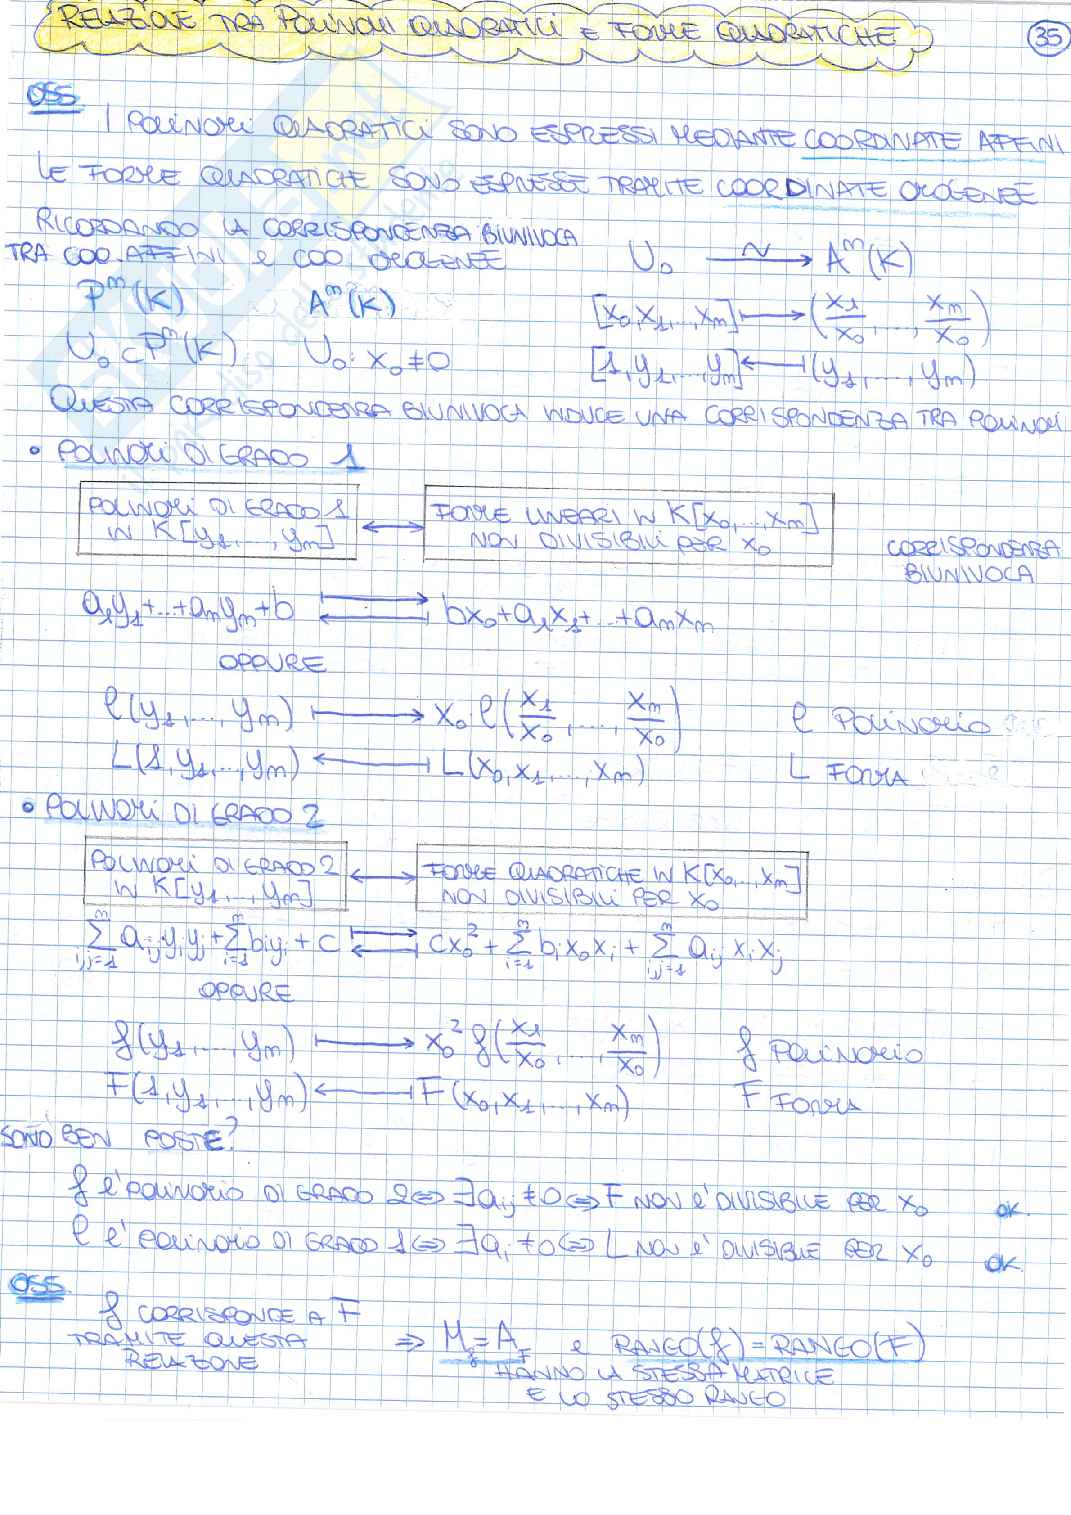 RELAZIONE TRA POLINOMI QUADRATICI E FORME QUADRATICHE
35
OSS
I POLINOMI QUADRATICI SONO ESPRESSI MEDIANTE COORDINATE AFFINI
LE FORME QUADRATICHE SONO ESPRESSE TRAMITE COORDINATE OMOGENEE
RICORDANDO LA CORRISPONDENZA BIUNIVOCA
TRA COO. AFFINI E COO. OMOGENEE
U₀ ⟶~ Aᵐ(K)
Pᵐ(K) Aᵐ(K)
[x₀,x₁,...,xₘ] ⟼ (x₁/x₀,...,xₘ/x₀)
U₀ ⊂ Pᵐ(K) U₀: x₀ ≠ 0
[1,y₁,...,yₘ] ⟻ (y₁,...,yₘ)
QUESTA CORRISPONDENZA BIUNIVOCA INDUCE UNA CORRISPONDENZA TRA POLINOMI
• POLINOMI DI GRADO 1
POLINOMI DI GRADO 1
IN K[y₁,...,yₘ]
↔
FORME LINEARI IN K[x₀,...,xₘ]
NON DIVISIBILI PER x₀
CORRISPONDENZA
BIUNIVOCA
a₁y₁+...+aₘyₘ+b ⇄ bx₀+a₁x₁+...+aₘxₘ
OPPURE
l(y₁,...,yₘ) ⟼ x₀·l(x₁/x₀,...,xₘ/x₀) l POLINOMIO
L(1,y₁,...,yₘ) ⟻ L(x₀,x₁,...,xₘ) L FORMA
• POLINOMI DI GRADO 2
POLINOMI DI GRADO 2
IN K[y₁,...,yₘ]
↔
FORME QUADRATICHE IN K[x₀,...,xₘ]
NON DIVISIBILI PER x₀
∑ᵐᵢ,ⱼ₌₁ aᵢⱼyᵢyⱼ + ∑ᵐᵢ₌₁ bᵢyᵢ + c ⇄ cx₀² + ∑ᵐᵢ₌₁ bᵢx₀xᵢ + ∑ᵐᵢ,ⱼ₌₁ aᵢⱼ xᵢxⱼ
OPPURE
f(y₁,...,yₘ) ⟼ x₀² f(x₁/x₀,...,xₘ/x₀) f POLINOMIO
F(1,y₁,...,yₘ) ⟻ F(x₀,x₁,...,xₘ) F FORMA
SONO BEN POSTE?
f è POLINOMIO DI GRADO 2 ⇔ ∃ aᵢⱼ ≠ 0 ⇔ F NON è DIVISIBILE PER x₀ OK.
l è POLINOMIO DI GRADO 1 ⇔ ∃ aᵢ ≠ 0 ⇔ L NON è DIVISIBILE PER x₀ OK.
OSS.
f CORRISPONDE A F
TRAMITE QUESTA
RELAZIONE
⇒ M_f = A_F e RANGO(f) = RANGO(F)
HANNO LA STESSA MATRICE
E LO STESSO RANGO